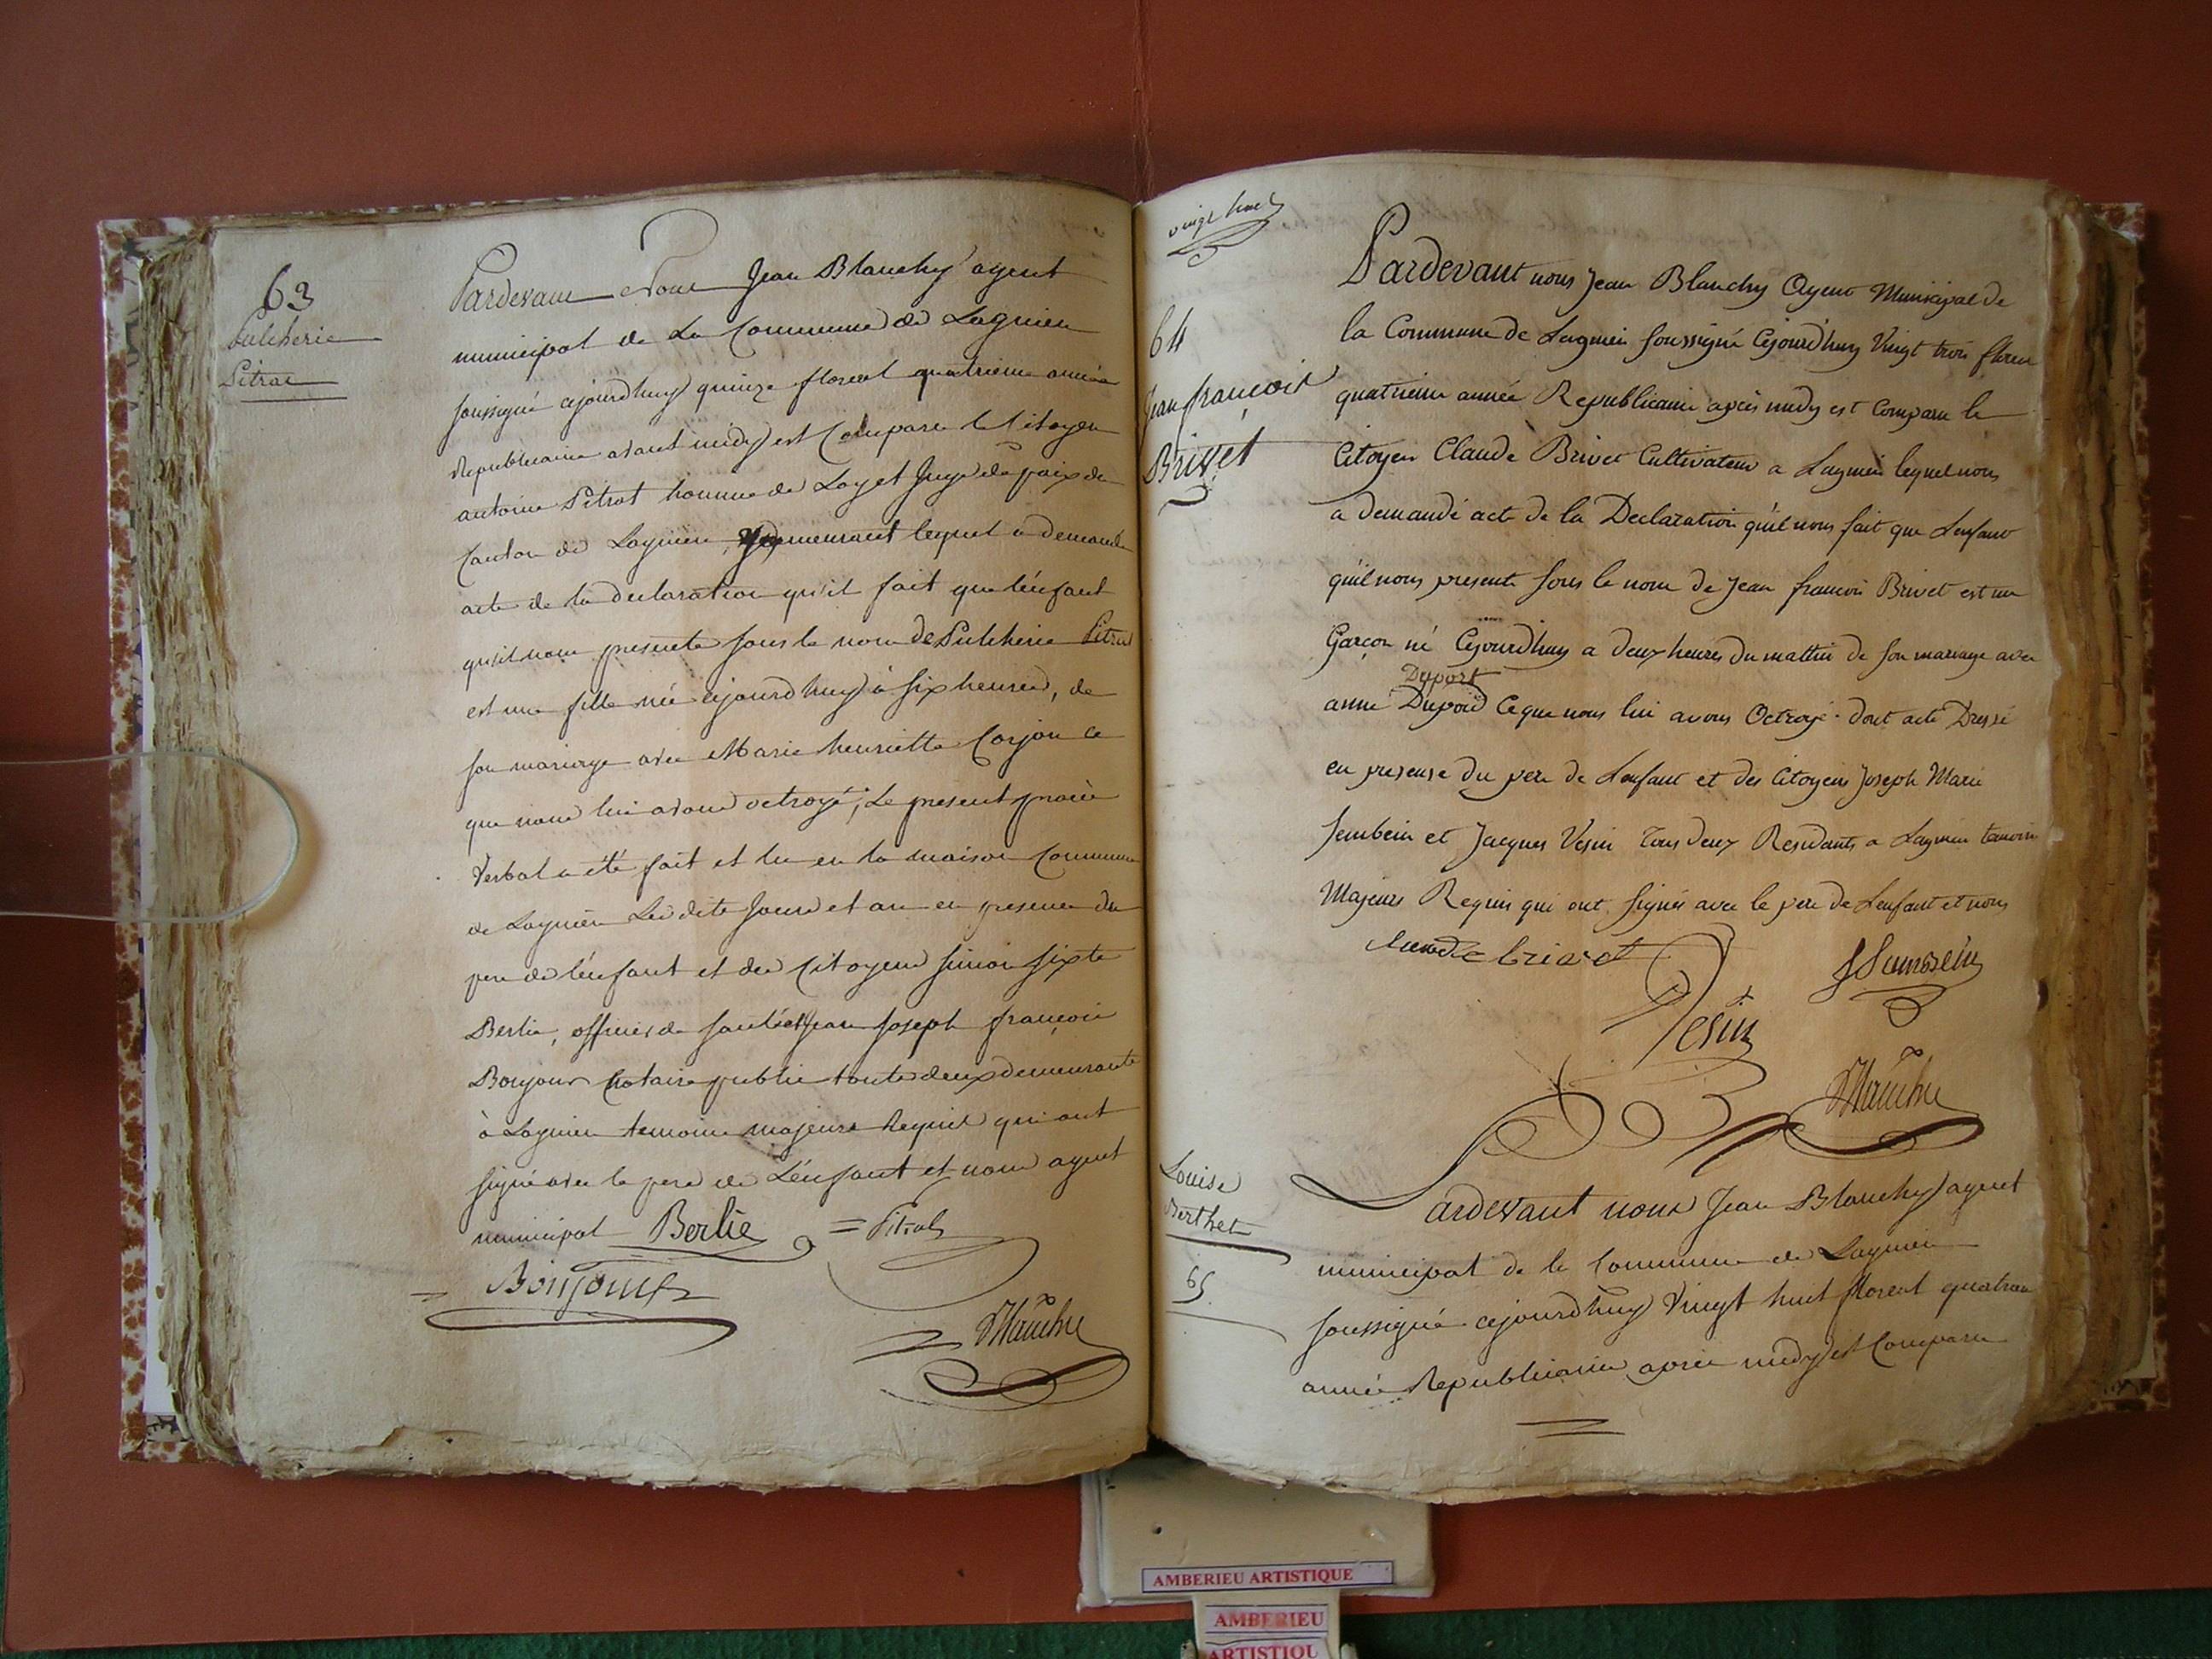 63
Pulcherie
Pitrat
Pardevant Nous Jean Blanchy agent
municipal de La Commune de Lagnieu
soussigné cejourdhuy quinze floreal quatrieme année
Republicaine avant midy est Comparu le Citoyen
antoine Pitrat homme de Loy et Juge de paix du
Canton de Lagnieu, y demeurant lequel a demandé
acte de la declaration qu'il fait que lénfant
qu'il nous presente sous le nom de Pulcherie Pitrat
est une fille née cejourdhuy à six heures, de
son mariage avec Marie henriette Corjon ce
que nous lui avons octroyé, Le present procès
Verbal a été fait et lu en la maison Commune
de Lagnieu Les dits Jour et an en presence du
pere de lénfant et des Citoyens simon sixte
Berlie, officier de santé et Jean Joseph françois
Bonjour Notaire public touts deux demeurants
à Lagnieu temoins majeurs Requis qui ont
signé avec le pere de Lénfant et nous agent
municipal Berlie = Pitrat
Bonjour
Blanchy
vingt huit
64
Jean françois
Brivet
Pardevant nous Jean Blanchy Agent Municipal de
la Commune de Lagnieu soussigné Cejourd'huy Vingt trois floreal
quatrieme année Republicaine après midy est Comparu le
Citoyen Claude Brivet Cultivateur a Lagnieu lequel nous
a demandé acte de la Declaration qu'il nous fait que Lenfant
qu'il nous presente sous le nom de Jean francois Brivet est un
Garçon né Cejourdhuy a deux heures du mattin de son mariage avec
Duport
anne Ce que nous lui avons Octroyé. dont acte Dressé
en presense du pere de Lenfant et des Citoyens Joseph Marie
Jambein et Jacques Vesin Tous deux Residants a Lagnieu temoins
Majeurs Requis qui ont signés avec le pere de Lenfant et nous
brivet
Vesin
Blanchy
Louise
Berthet
65
Pardevant nous Jean Blanchy agent
municipal de la Commune de Lagnieu
soussigné cejourdhuy Vingt huit floreal quatrieme
année Republicaine après midy est Comparu
AMBERIEU ARTISTIQUE
AMBERIEU
ARTISTIQU